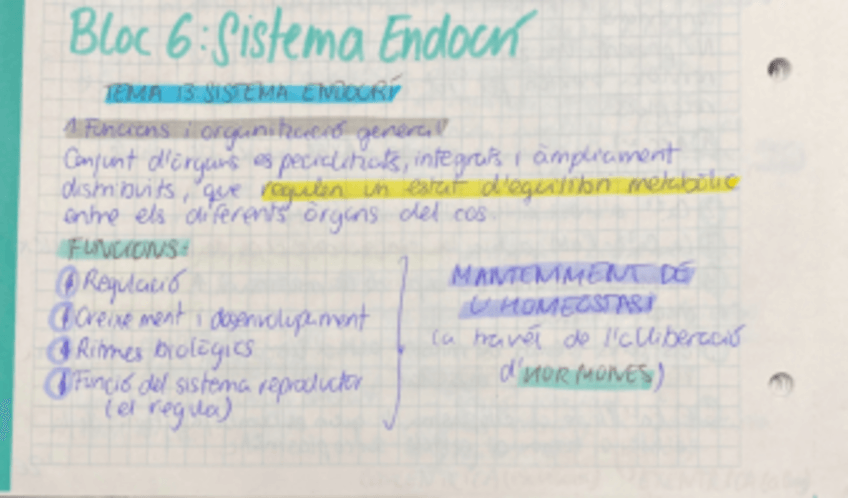 Bloc 6: Sistema Endocrí
TEMA 13 SISTEMA ENDOCRÍ
1 Funcions i organització general
Conjunt d'òrgans especialitzats, integrats i àmpliament
distribuïts, que regulen un estat d'equilibri metabòlic
entre els diferents òrgans del cos
FUNCIONS:
Regulació
Creixement i desenvolupament
Ritmes biològics
Funció del sistema reproductor
(el regula)
MANTENIMENT DE
L'HOMEOSTASI
(a través de l'alliberació
d'HORMONES)